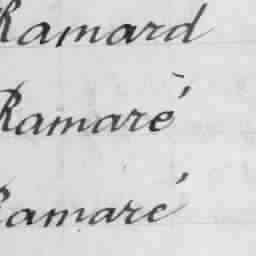 Ramard
Ramaré
Ramaré